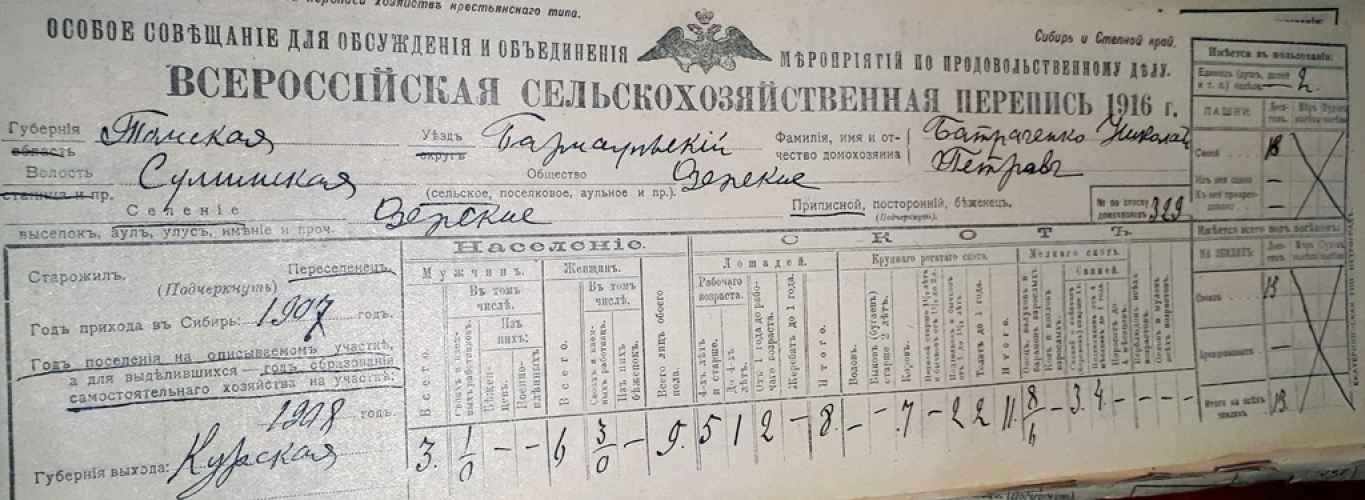 переписи хозяйствъ крестьянскаго типа.
ОСОБОЕ СОВѢЩАНІЕ ДЛЯ ОБСУЖДЕНІЯ И ОБЪЕДИНЕНІЯ МѢРОПРІЯТІЙ ПО ПРОДОВОЛЬСТВЕННОМУ ДѢЛУ.
Сибирь и Степной край.
ВСЕРОССІЙСКАЯ СЕЛЬСКОХОЗЯЙСТВЕННАЯ ПЕРЕПИСЬ 1916 г.
Губернія Томская Уѣздъ Барнаульскій Фамилія, имя и от- Батраченко Николай
область округъ чество домохозяина Петравъ
Волость Сулинская Общество Зерские
станица и пр. (сельское, поселковое, аульное и пр.)
Селеніе Зерские Приписной, посторонній, бѣженец. № по списку домохозяевъ 329
выселокъ, аулъ, улусъ, имѣніе и проч. (Подчеркнуть).
Старожилъ. Переселенец.
(Подчеркнуть)
Годъ прихода въ Сибирь: 1907 годъ.
Годъ поселенія на описываемомъ участкѣ,
а для выдѣлившихся — годъ образованія
самостоятельнаго хозяйства на участкѣ:
1908 годъ.
Губернія выхода: Курская
Населеніе.
Мужчинъ. Женщинъ. Всего лицъ обоего пола.
Всего. Въ томъ числѣ. Изъ нихъ: Бѣженцевъ. Военно-плѣнныхъ
Всего. Въ томъ числѣ. Изъ нихъ бѣженокъ.
СКОТЪ.
Лошадей.
Рабочаго возраста. 4-хъ лѣтъ и старше. До 4-хъ лѣтъ. Отъ 1 года до рабочаго возраста. Жеребятъ до 1 года. Итого.
Крупнаго рогатаго скота.
Воловъ. Быковъ (бугаевъ) старше 2 лѣтъ. Коровъ. Телятъ до 1 года. Итого.
Мелкаго скота.
Свиней.
3. 1/0 - - 6 3/0 - 9. 5 1 2 - 8. - - 7 - 2 2 11. 8/6 - 3. 4. - - - -
Имѣется въ пользованіи:
Единицъ (душ. долей и т. п.) 2.
ПАШНИ.
Своей 13
Изъ нея сдано —
Имѣется всего подъ посѣвомъ:
НА ЗЕМЛЯХЪ.
Своихъ 13
Арендованныхъ —
Итого на всѣхъ земляхъ 13.